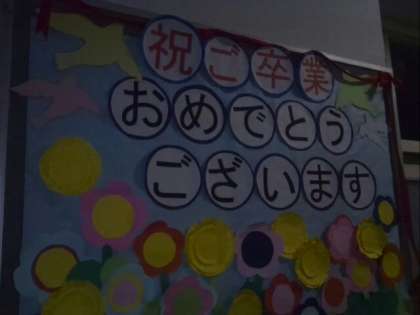 祝ご卒業
おめでとう
ございます